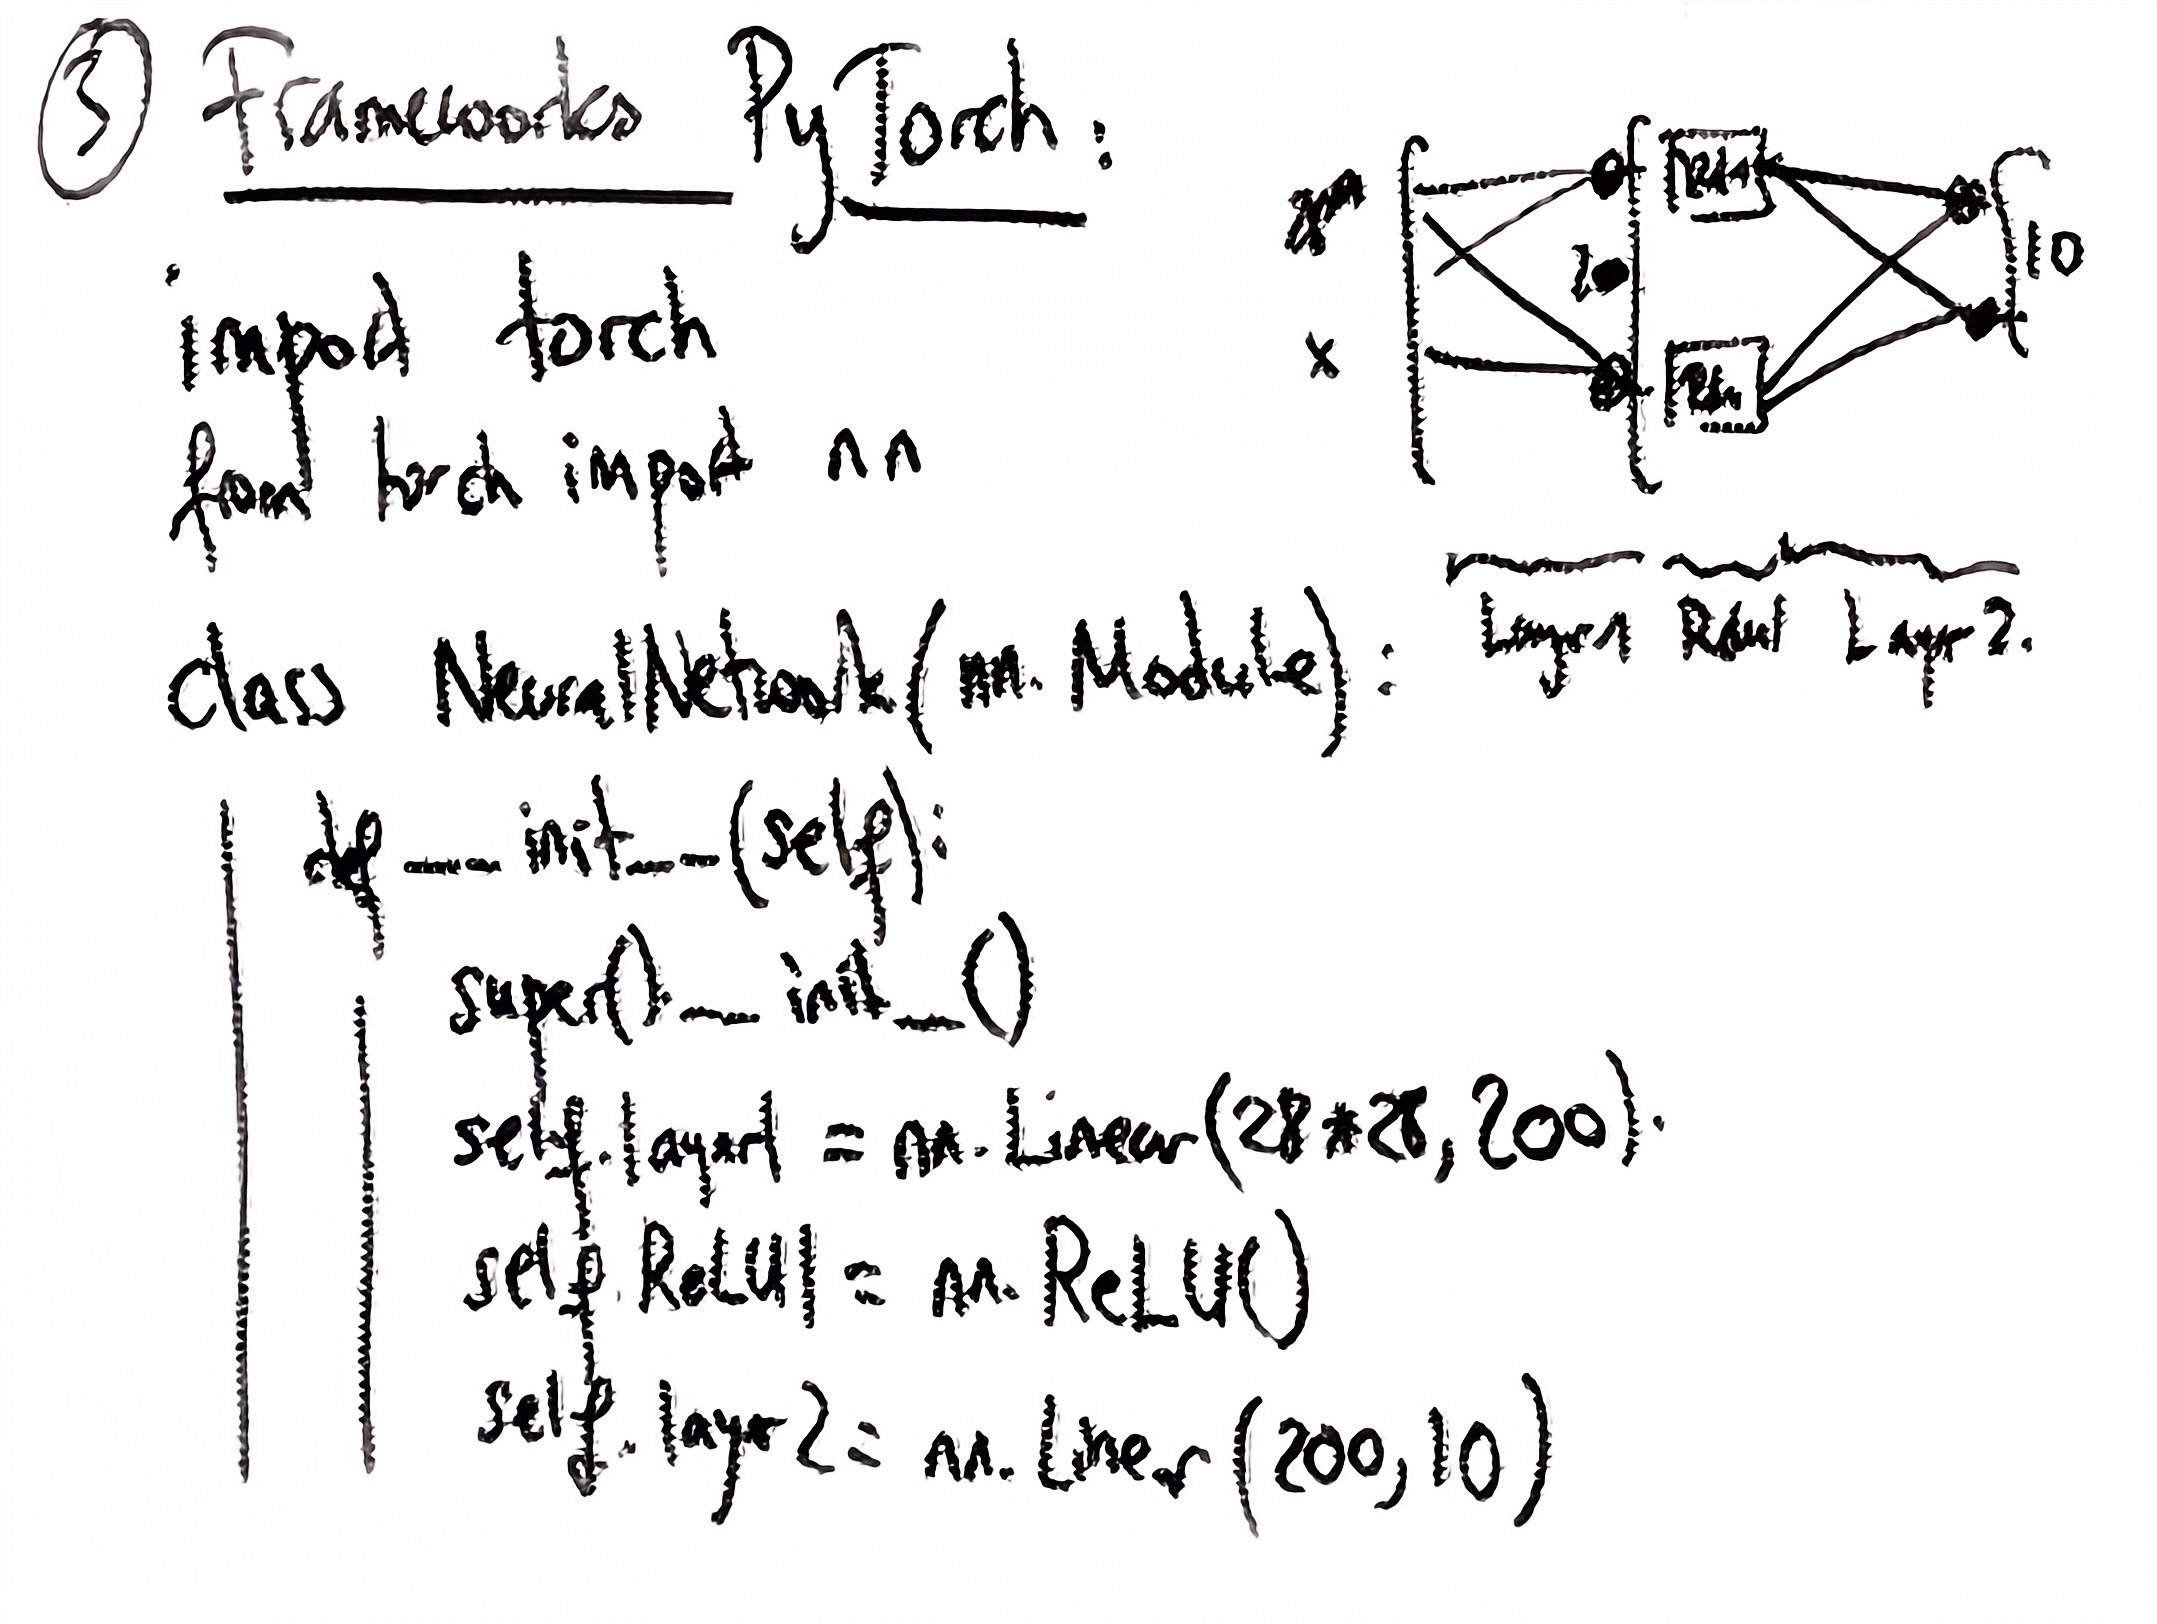 ③ Frameworks PyTorch:
import torch
from torch import nn
class NeuralNetwork(nn.Module):
def __init__(self):
super().__init__()
self.layer1 = nn.Linear(28*28, 200).
self.ReLU1 = nn.ReLU()
self.layer2 = nn.Linear(200, 10)
x
10
Layer1 ReLU Layer2.